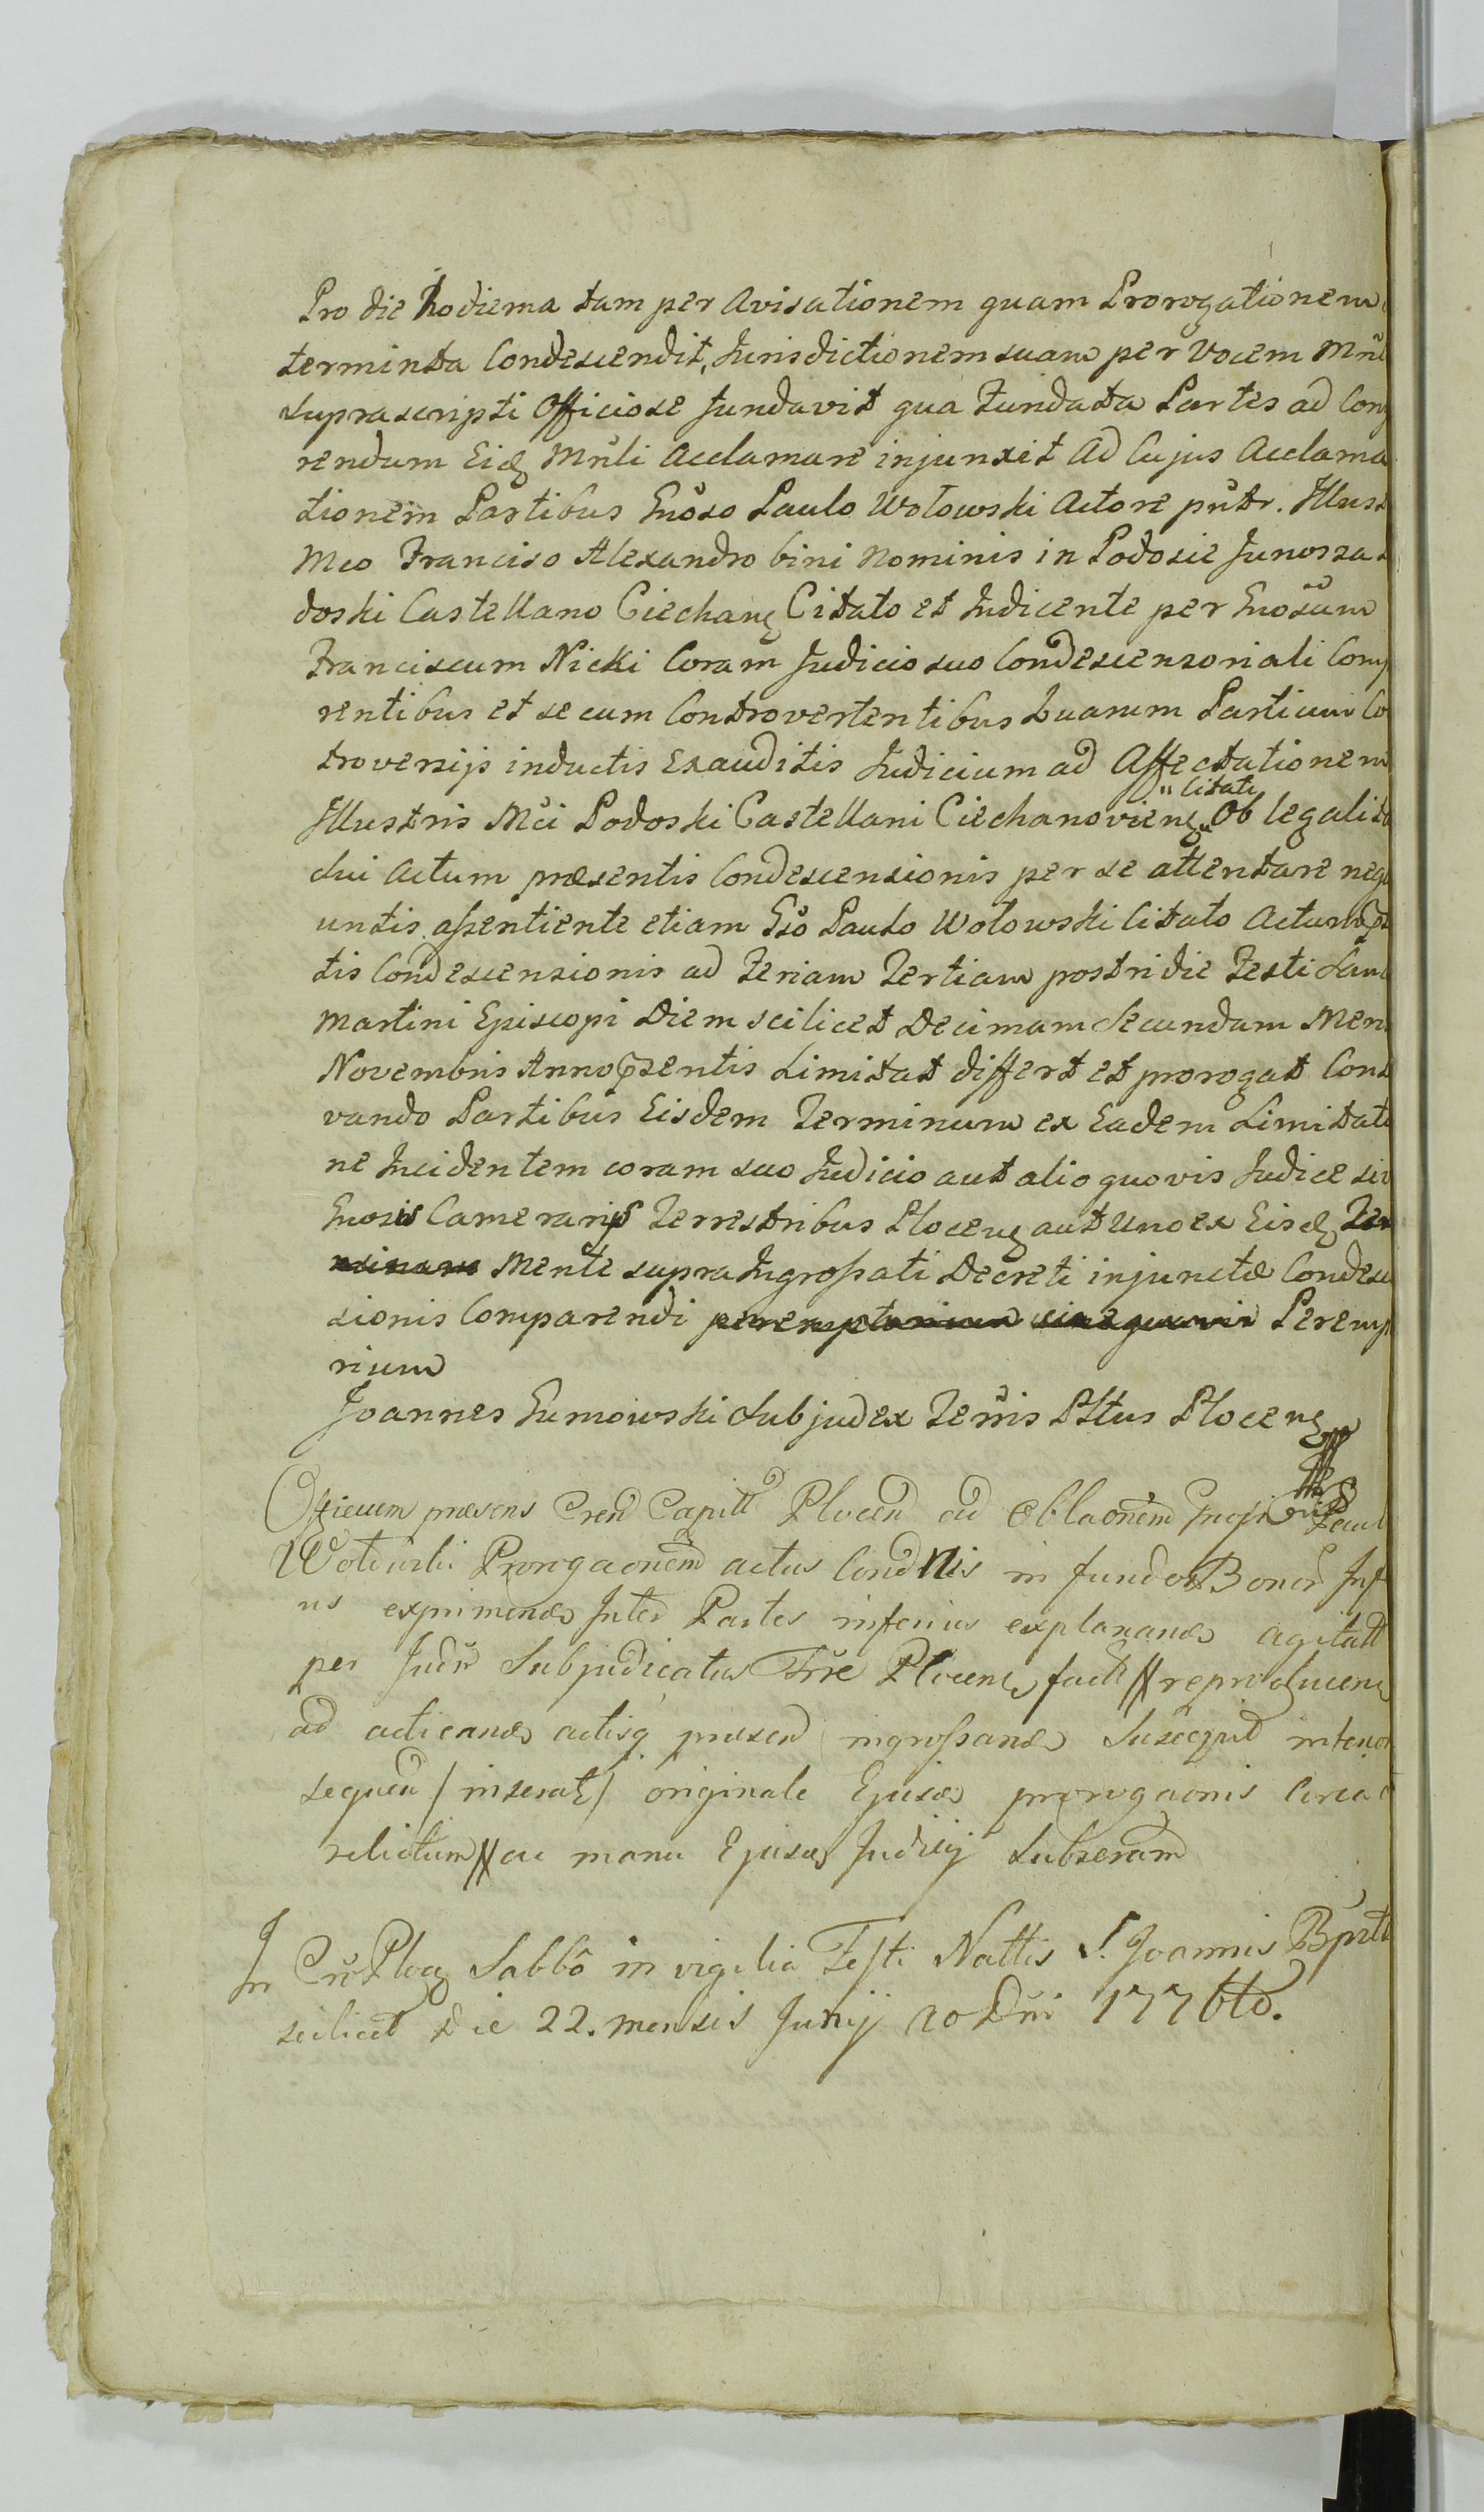 Pro die hodierna tam per Avisationem quam Prorogationem
terminta Condescendit, Jurisdictionem suam per Vocem Mñl
suprascripti Officiose fundavit qua Fundata Partes ad Com
rendum Eid Mñli Acclamare injunxit Ad Cujus Acclama
tionem Partibus Gnoso Paulo Wolowski Actore pñtr. Illust
Mco Franciso Alexandro bini Nominis in Podosie Junosza
doski Castellano Ciechan Citato et Indicente per Gnosum
Franciscum Nicki Coram Judicio suo Condescensoriali Comp
rentibus et secum Controvertentibus Quarum Partium Co
troversijs inductis Exauditis Judicium ad Affectationem
Illustris Mci Podoski Castellani Ciechanovien "Citati" Ob legalit
sui Actum præsentis Condescensionis per se attentare neq
untis assentiente etiam Gso Paulo Wolowski Citato Actum
tis Condescensionis ad Feriam Tertiam postridie Festi San
Martini Episcopi Diem scilicet Decimam Secundam Men
Novembris Anno psentis Limitat differt et prorogat Cons
vando Partibus Eisdem Terminum ex Eadem Limitati
ne Incidentem coram suo Judicio aut alio quovis Judice si
Gnosis Camerarijs Terrestribus Plocen aut Uno ex Eisd
Mente supra Ingrossati Decreti injunctæ Condesc
sionis Comparendi peremptorium Peremp
rium
Joannes Gumowski Subjudex Terris Pttus Plocen
Officium præsens Cren Capitt Plocen ad Oblaonem Gnosi Paul
Wolowski Prorogaonem actus Condnis in fundo Bonor Inf
us exprimen Inter Partes inferius explanan agitatt
per Judm Subjudicatus Trre Plocen fact reproducen
ad actican actisq præsen ingrossan Suscepit intenor
sequen / inserat / originale Ejusd prorogaonis Circa
relictum ac manu Ejusd Judicij Subscram
In Crõ Ploc Sabbõ in vigilia Festi Nattis S. Joannis Bpt
scilicet Die 22. mensis Junij Ao Dni 1776to.